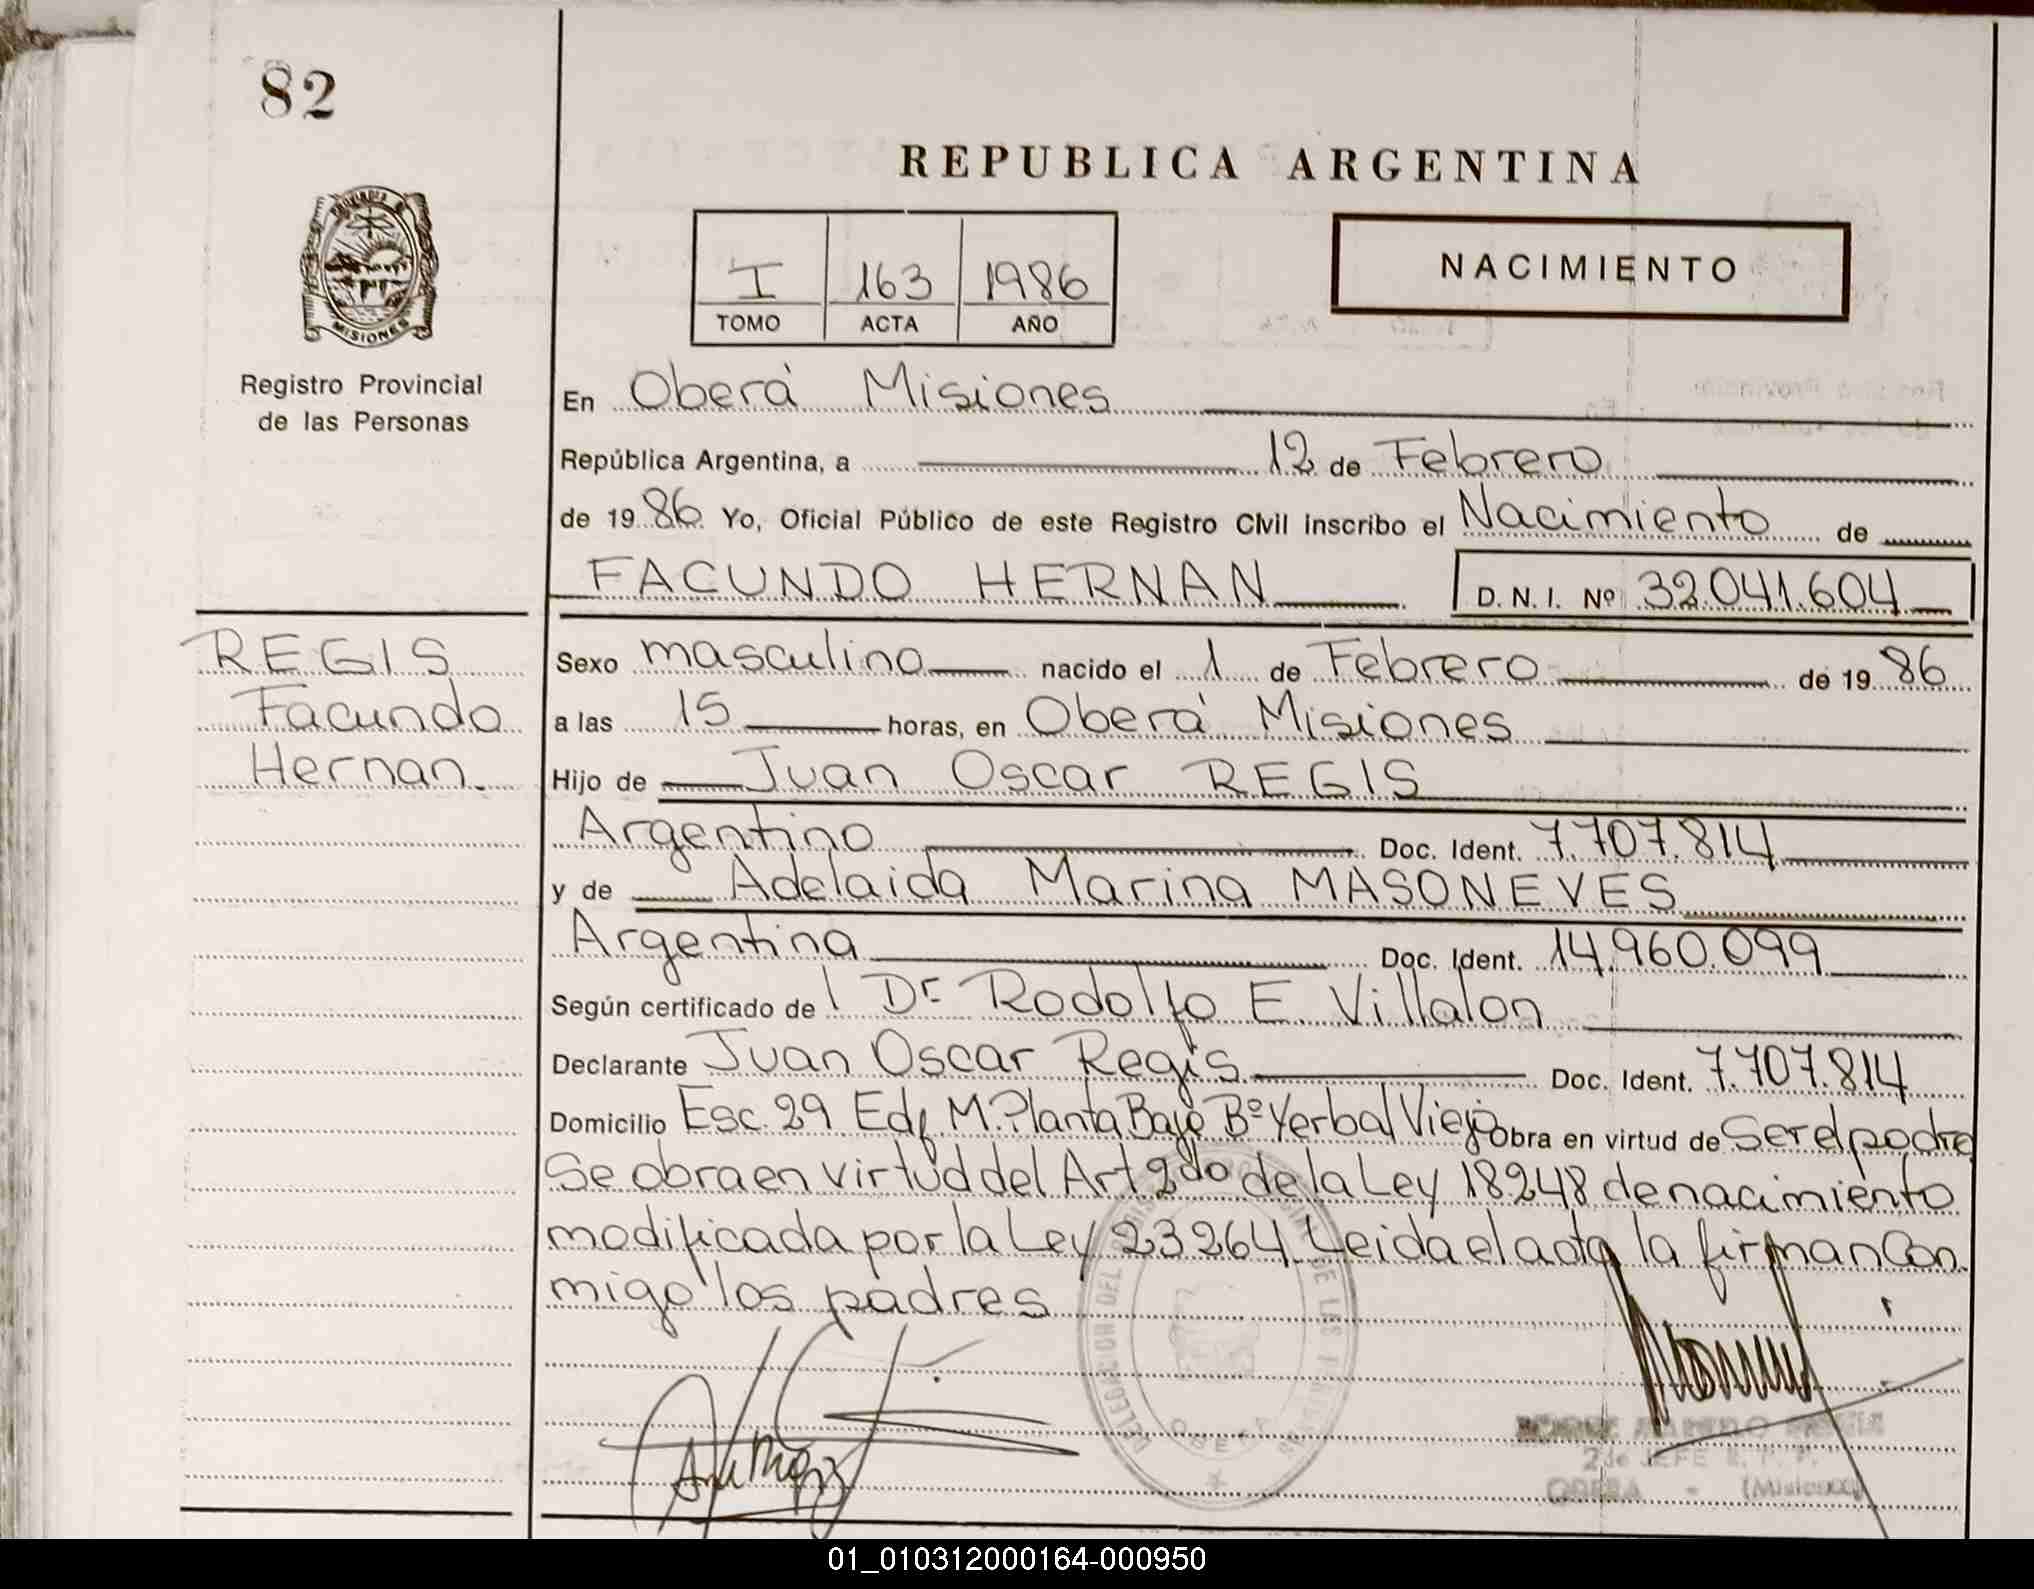 82
REPUBLICA ARGENTINA
PROVINCIA DE
MISIONES
Registro Provincial
de las Personas
I 163 1986
TOMO ACTA AÑO
NACIMIENTO
En Oberá Misiones
República Argentina, a 12 de Febrero
de 19 86 Yo, Oficial Público de este Registro Civil inscribo el Nacimiento de
FACUNDO HERNAN D. N. I. Nº 32.041.604
REGIS
Facundo
Hernan.
Sexo masculino nacido el 1 de Febrero de 19 86
a las 15 horas, en Oberá Misiones
Hijo de Juan Oscar REGIS
Argentino Doc. Ident. 7.707.814
y de Adelaida Marina MASONEVES
Argentina Doc. Ident. 14.960.099
Según certificado de l Dr Rodolfo E. Villalon
Declarante Juan Oscar Regis Doc. Ident. 7.707.814
Domicilio Esc. 29 Edf M. Planta Baje Bº Yerbal Viejo obra en virtud de Ser el padre
Se obra en virtud del Art 2do de la Ley 18248 de nacimiento
modificada por la Ley 23264. Leida el acta la firman Con
migo los padres
DELEGACION DEL PROVINCIAL DE LAS PERSONAS
OBERA
2do JEFE
OBERA - (Misiones)
01_010312000164-000950